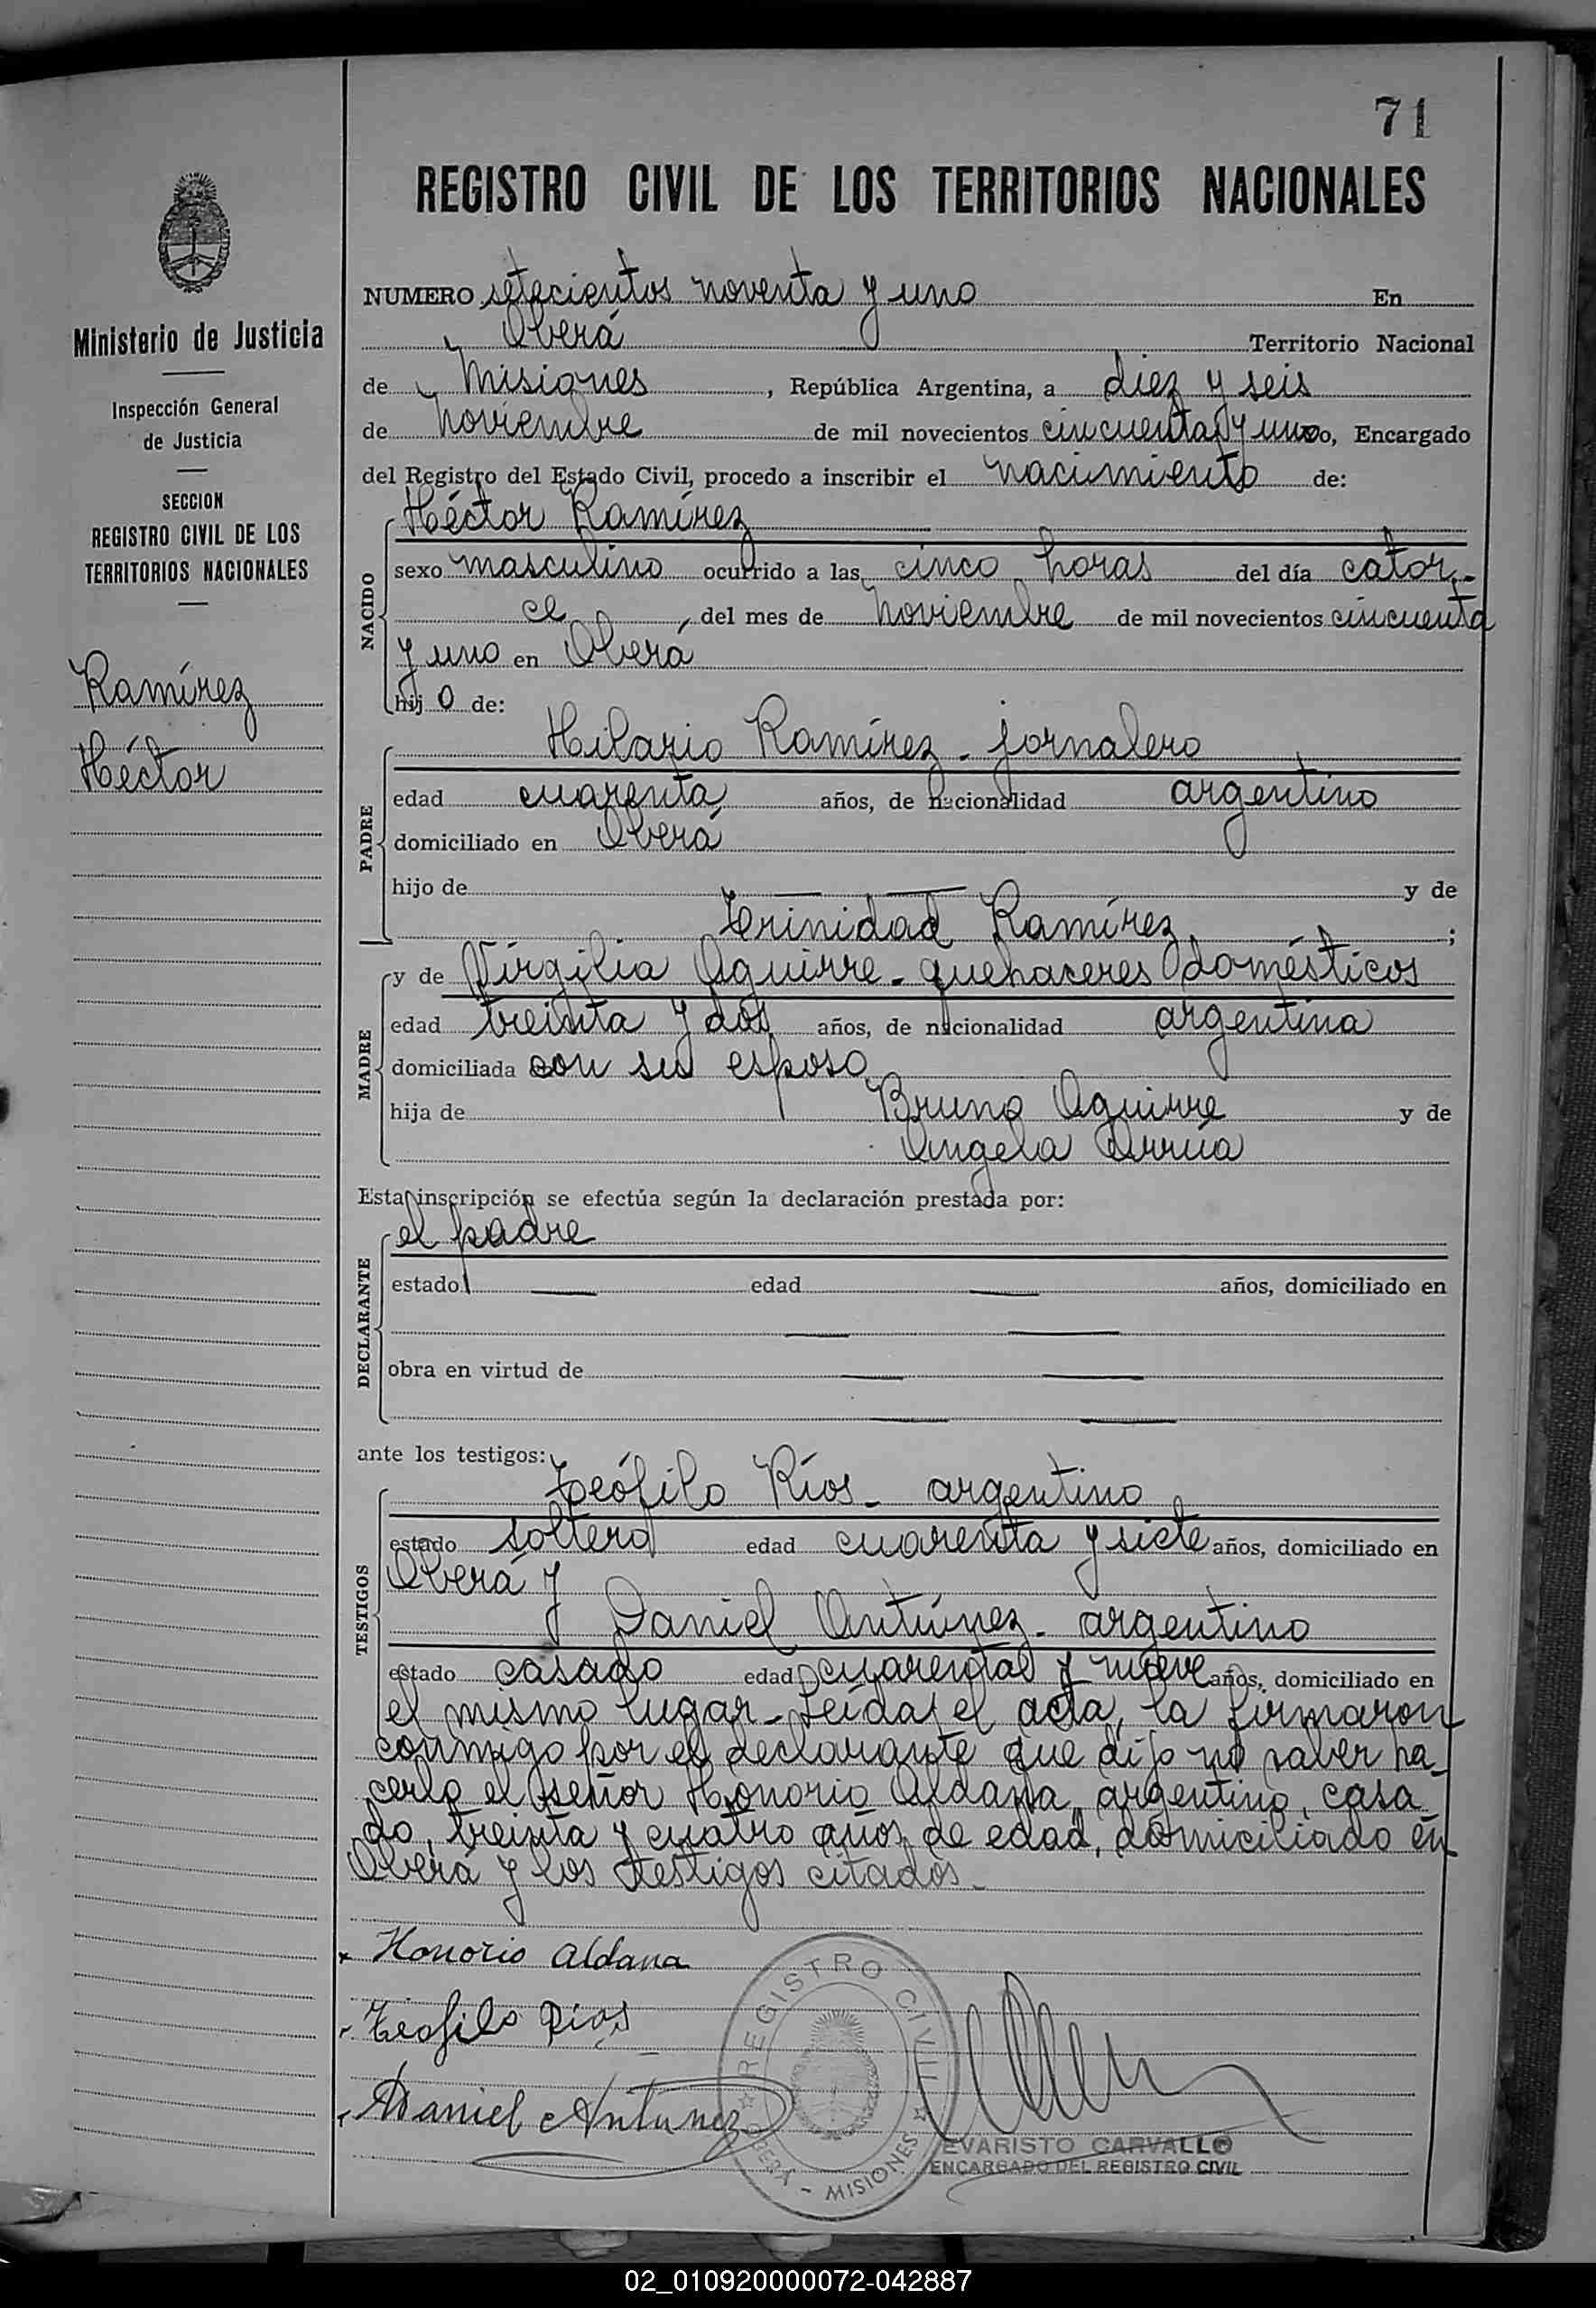 71
REGISTRO CIVIL DE LOS TERRITORIOS NACIONALES
Ministerio de Justicia
Inspección General
de Justicia
SECCION
REGISTRO CIVIL DE LOS
TERRITORIOS NACIONALES
Ramírez
Héctor
NUMERO setecientos noventa y uno En
Oberá Territorio Nacional
de Misiones, República Argentina, a diez y seis
de noviembre de mil novecientos cincuenta y uno, Encargado
del Registro del Estado Civil, procedo a inscribir el nacimiento de:
NACIDO
Héctor Ramírez
sexo masculino ocurrido a las cinco horas del día cator-
ce, del mes de noviembre de mil novecientos cincuenta
y uno en Oberá
hijo de:
PADRE
Hilario Ramírez - jornalero
edad cuarenta años, de nacionalidad argentino
domiciliado en Oberá
hijo de — — y de
trinidad Ramírez ;
MADRE
y de Virgilia Aguirre - quehaceres domésticos
edad treinta y dos años, de nacionalidad argentina
domiciliada con su esposo
hija de Bruno Aguirre y de
Angela Arrúa
Esta inscripción se efectúa según la declaración prestada por:
DECLARANTE
el padre
estado — edad — años, domiciliado en
— —
obra en virtud de — —
— —
ante los testigos:
TESTIGOS
teófilo Ríos - argentino
estado soltero edad cuarenta y siete años, domiciliado en
Oberá y
Daniel Antúnez - argentino
estado casado edad cuarenta y nueve años, domiciliado en
el mismo lugar - Leída el acta, la firmaron
conmigo por el declarante que dijo no saber ha-
cerlo el señor Honorio Aldana, argentino, casa-
do, treinta y cuatro años de edad, domiciliado en
Oberá y los testigos citados -
Honorio Aldana
teofilo Rios
Daniel Antunez
REGISTRO CIVIL
OBERÁ - MISIONES
EVARISTO CARVALLO
ENCARGADO DEL REGISTRO CIVIL
02_010920000072-042887